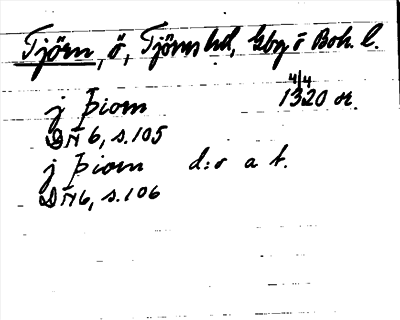 Tjörn, ö, Tjörns hd, Gbg o Boh. l.
j Þiorn 4/4 1320 or.
DN 6, s.105
j Þiorn d:o a t.
DN 6, s.106